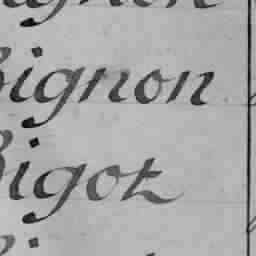 Bignon
Bigot